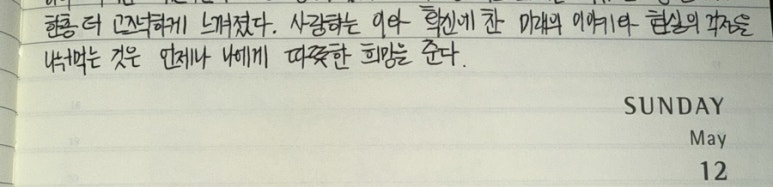 한층 더 고즈넉하게 느껴졌다. 사랑하는 이와 확신에 찬 미래의 이야기와 현실의 걱정을
나눠먹는 것은 언제나 나에게 따뜻한 희망을 준다.
SUNDAY
May
12